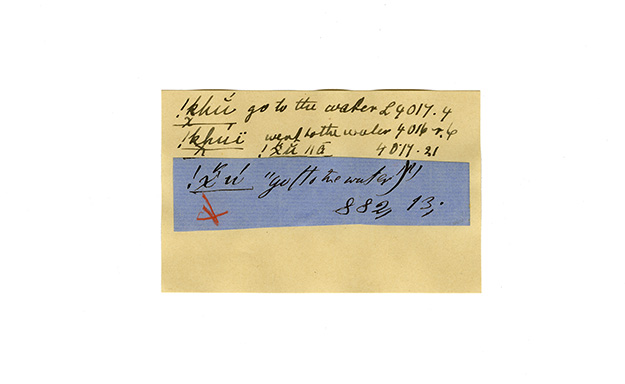 !khŭ go to the water L 4017.4
!khúï went to the water 4016 r. 6
!x̆ŭ ǁā 4017.21
!x̆ú "go (to the water)"
882, 13;